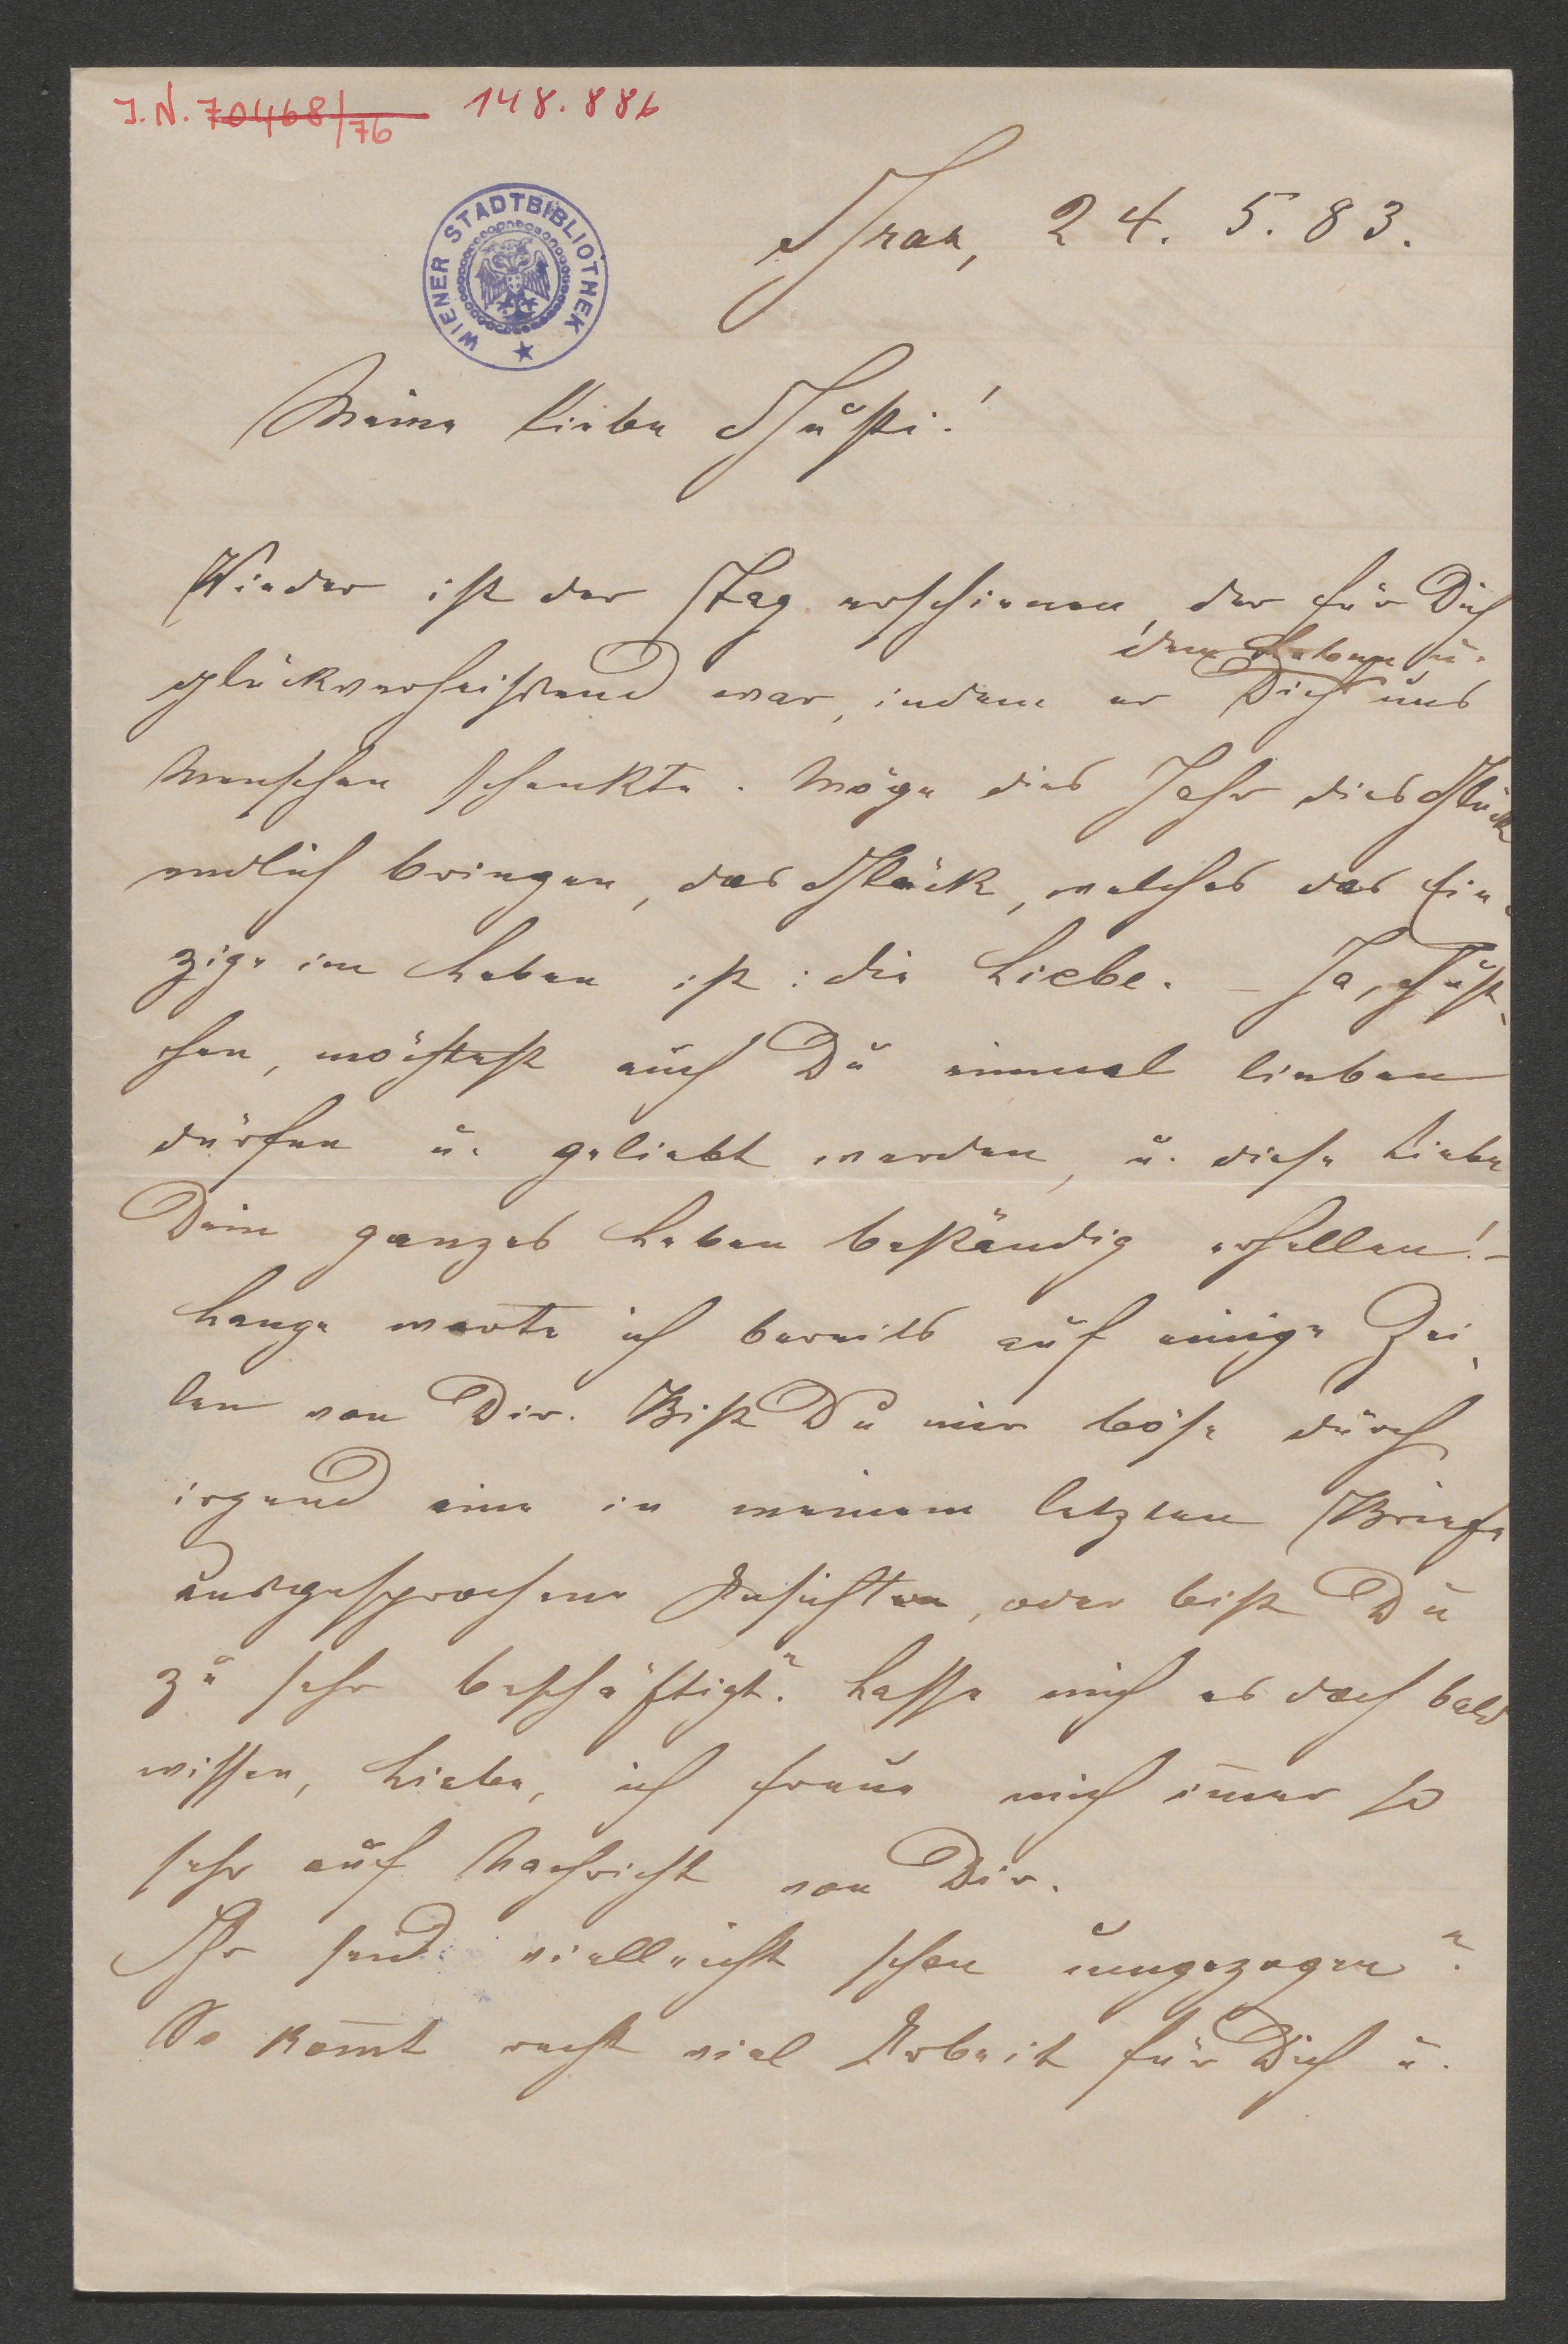 J. N. 70468/76 148.886
WIENER STADTBIBLIOTHEK
Graz, 24. 5. 83.
Meine liebe Gusti!
Wieder ist der Tag erschienen, der für Dich
dem Leben u.
glückverheissend war, indem er Dich uns
Menschen schenkte. Möge dies Jahr dies Glück
endlich bringen, das Glück, welches das Ein-
zige im Leben ist: die Liebe. – Ja, Gust-
chen, möchtest auch Du einmal lieben
dürfen u. geliebt werden, u. diese Liebe
Dein ganzes Leben beständig erhellen! –
Lange warte ich bereits auf einige Zei-
len von Dir. Bist Du mir böse durch
irgend eine in meinem letzten Briefe
ausgesprochene Ansichten, oder bist Du
zu sehr beschäftigt? Lasse mich es doch bald
wissen, Liebe, ich freue mich im̅er so
sehr auf Nachricht von Dir.
Ihr seid vielleicht schon umgezogen?
So kom̅t recht viel Arbeit für Dich u.